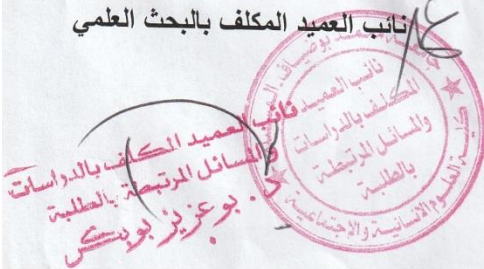 ع/ نائب العميد المكلف بالبحث العلمي
نائب العميد
المكلف بالدراسات
والمسائل المرتبطة
بالطلبة
كلية العلوم الإنسانية والإجتماعية
نائب العميد المكلف بالدراسات
والمسائل المرتبطة بالطلبة
د. بوعزيز بوبكر